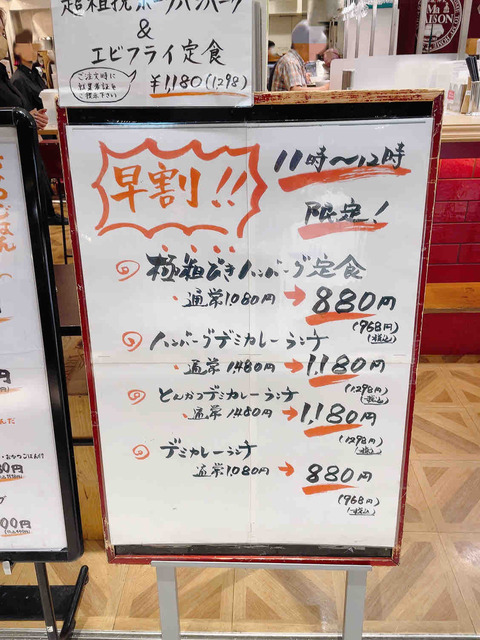 超粗挽ポークハンバーグ
&
エビフライ定食
ご注文時に
¥1,180(1298)
MAISON
早割!!
11時〜12時
限定!
極粗びきハンバーグ定食
・通常1.080円→880円
(968円)
(税込)
ハンバーグデミカレーランチ
・通常1480円→1,180円
(1,298円)
(税込)
とんかつデミカレーランチ
・通常1480円→1,180円
(1298円)
(税込)
デミカレーランチ
通常1,080円→880円
(968円)
(税込)
ごはん